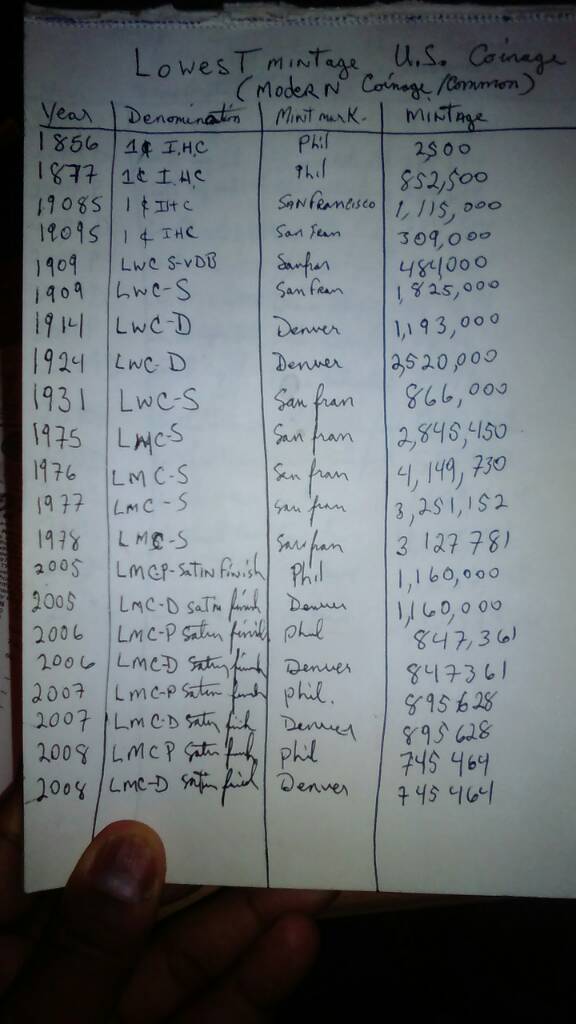 Lowest mintage U.S. Coinage
(Modern Coinage/Common)
Year Denomination Mint mark. Mintage
1856 1¢ I.H.C Phil 2,500
1877 1¢ I.H.C Phil 852,500
1908S 1¢ IHC SAN FRANCISCO 1,115,000
1909S 1¢ IHC San Fran 309,000
1909 LWC S-VDB Sanfran 484,000
1909 LWC-S San Fran 1,825,000
1914 LWC-D Denver 1,193,000
1924 LWC-D Denver 2,520,000
1931 LWC-S San fran 866,000
1975 LMC-S San fran 2,845,450
1976 LMC-S San fran 4,149,730
1977 LMC-S San fran 3,251,152
1978 LMC-S San fran 3 127 781
2005 LMCP-Satin Finish Phil 1,160,000
2005 LMC-D satin finish Denver 1,160,000
2006 LMC-P Satin finish Phil 847,361
2006 LMC-D Satin finish Denver 847361
2007 LMC-P Satin finish Phil. 895628
2007 LMC-D Satin finish Denver 895628
2008 LMCP Satin finish Phil 745 464
2008 LMC-D Satin finish Denver 745 464